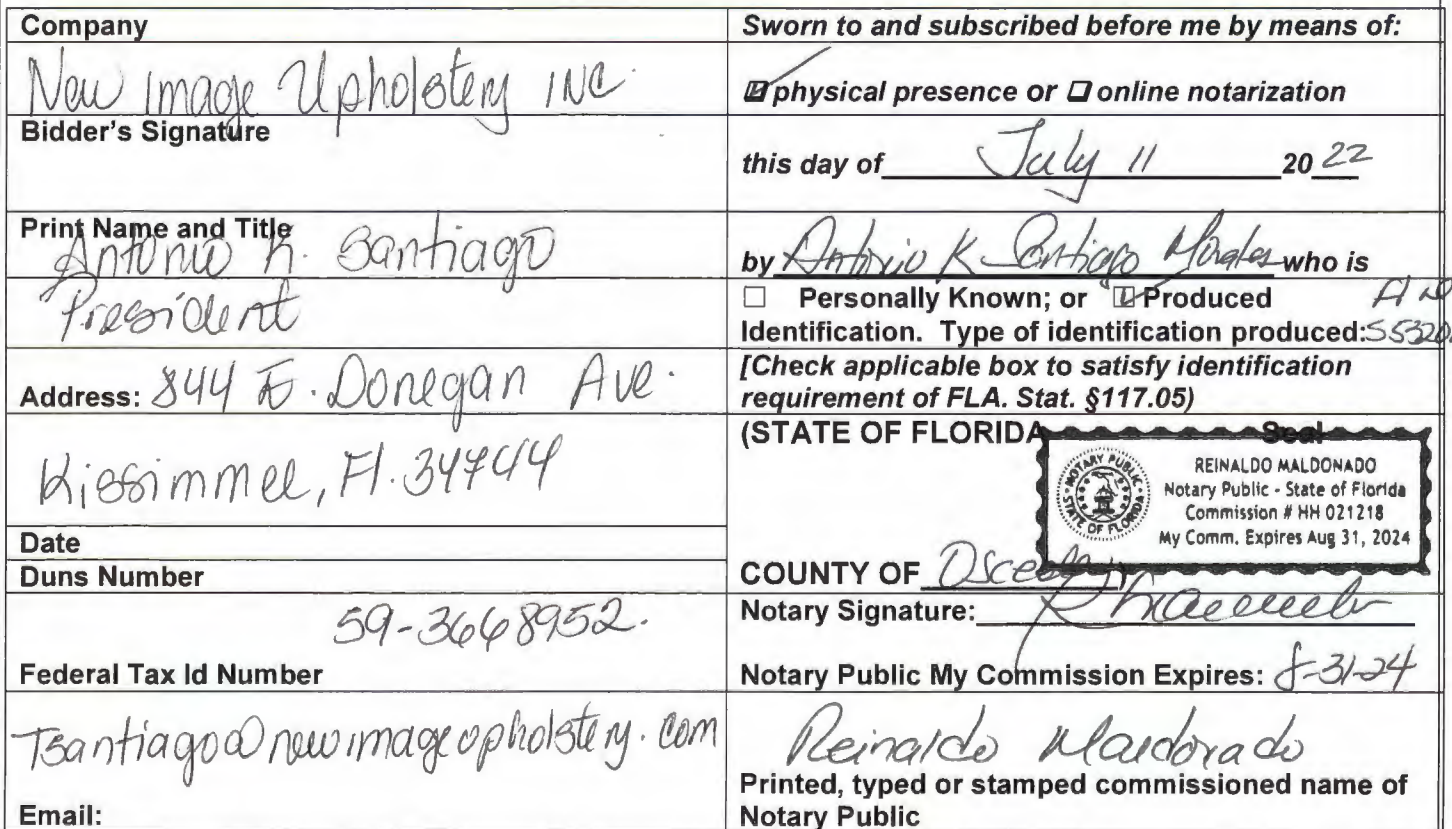 Company
New Image Upholstery INC.
Bidder's Signature
Print Name and Title
Antonio K. Santiago
President
Address: 844 E. Donegan Ave.
Kissimmee, Fl. 34744
Date
Duns Number
59-3668952.
Federal Tax Id Number
Tsantiago@newimageupholstery.com
Email:
Sworn to and subscribed before me by means of:
physical presence or ☐ online notarization
this day of July 11 20 22
by Antonio K Santiago Morales who is
☐ Personally Known; or ☑ Produced
Identification. Type of identification produced: S5320
[Check applicable box to satisfy identification
requirement of FLA. Stat. §117.05)
(STATE OF FLORIDA Seal
NOTARY PUBLIC
STATE OF FLORIDA
REINALDO MALDONADO
Notary Public - State of Florida
Commission # HH 021218
My Comm. Expires Aug 31, 2024
COUNTY OF Osceola
Notary Signature:
Notary Public My Commission Expires: 8-31-24
Reinaldo Maldonado
Printed, typed or stamped commissioned name of
Notary Public